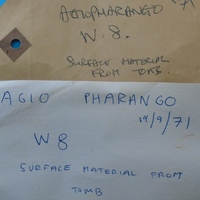 '71
AGIOPHARANGO
W.8.
SURFACE MATERIAL
FROM TOMB.
AGIO PHARANGO
19/9/71
W8
SURFACE MATERIAL FROM
TOMB